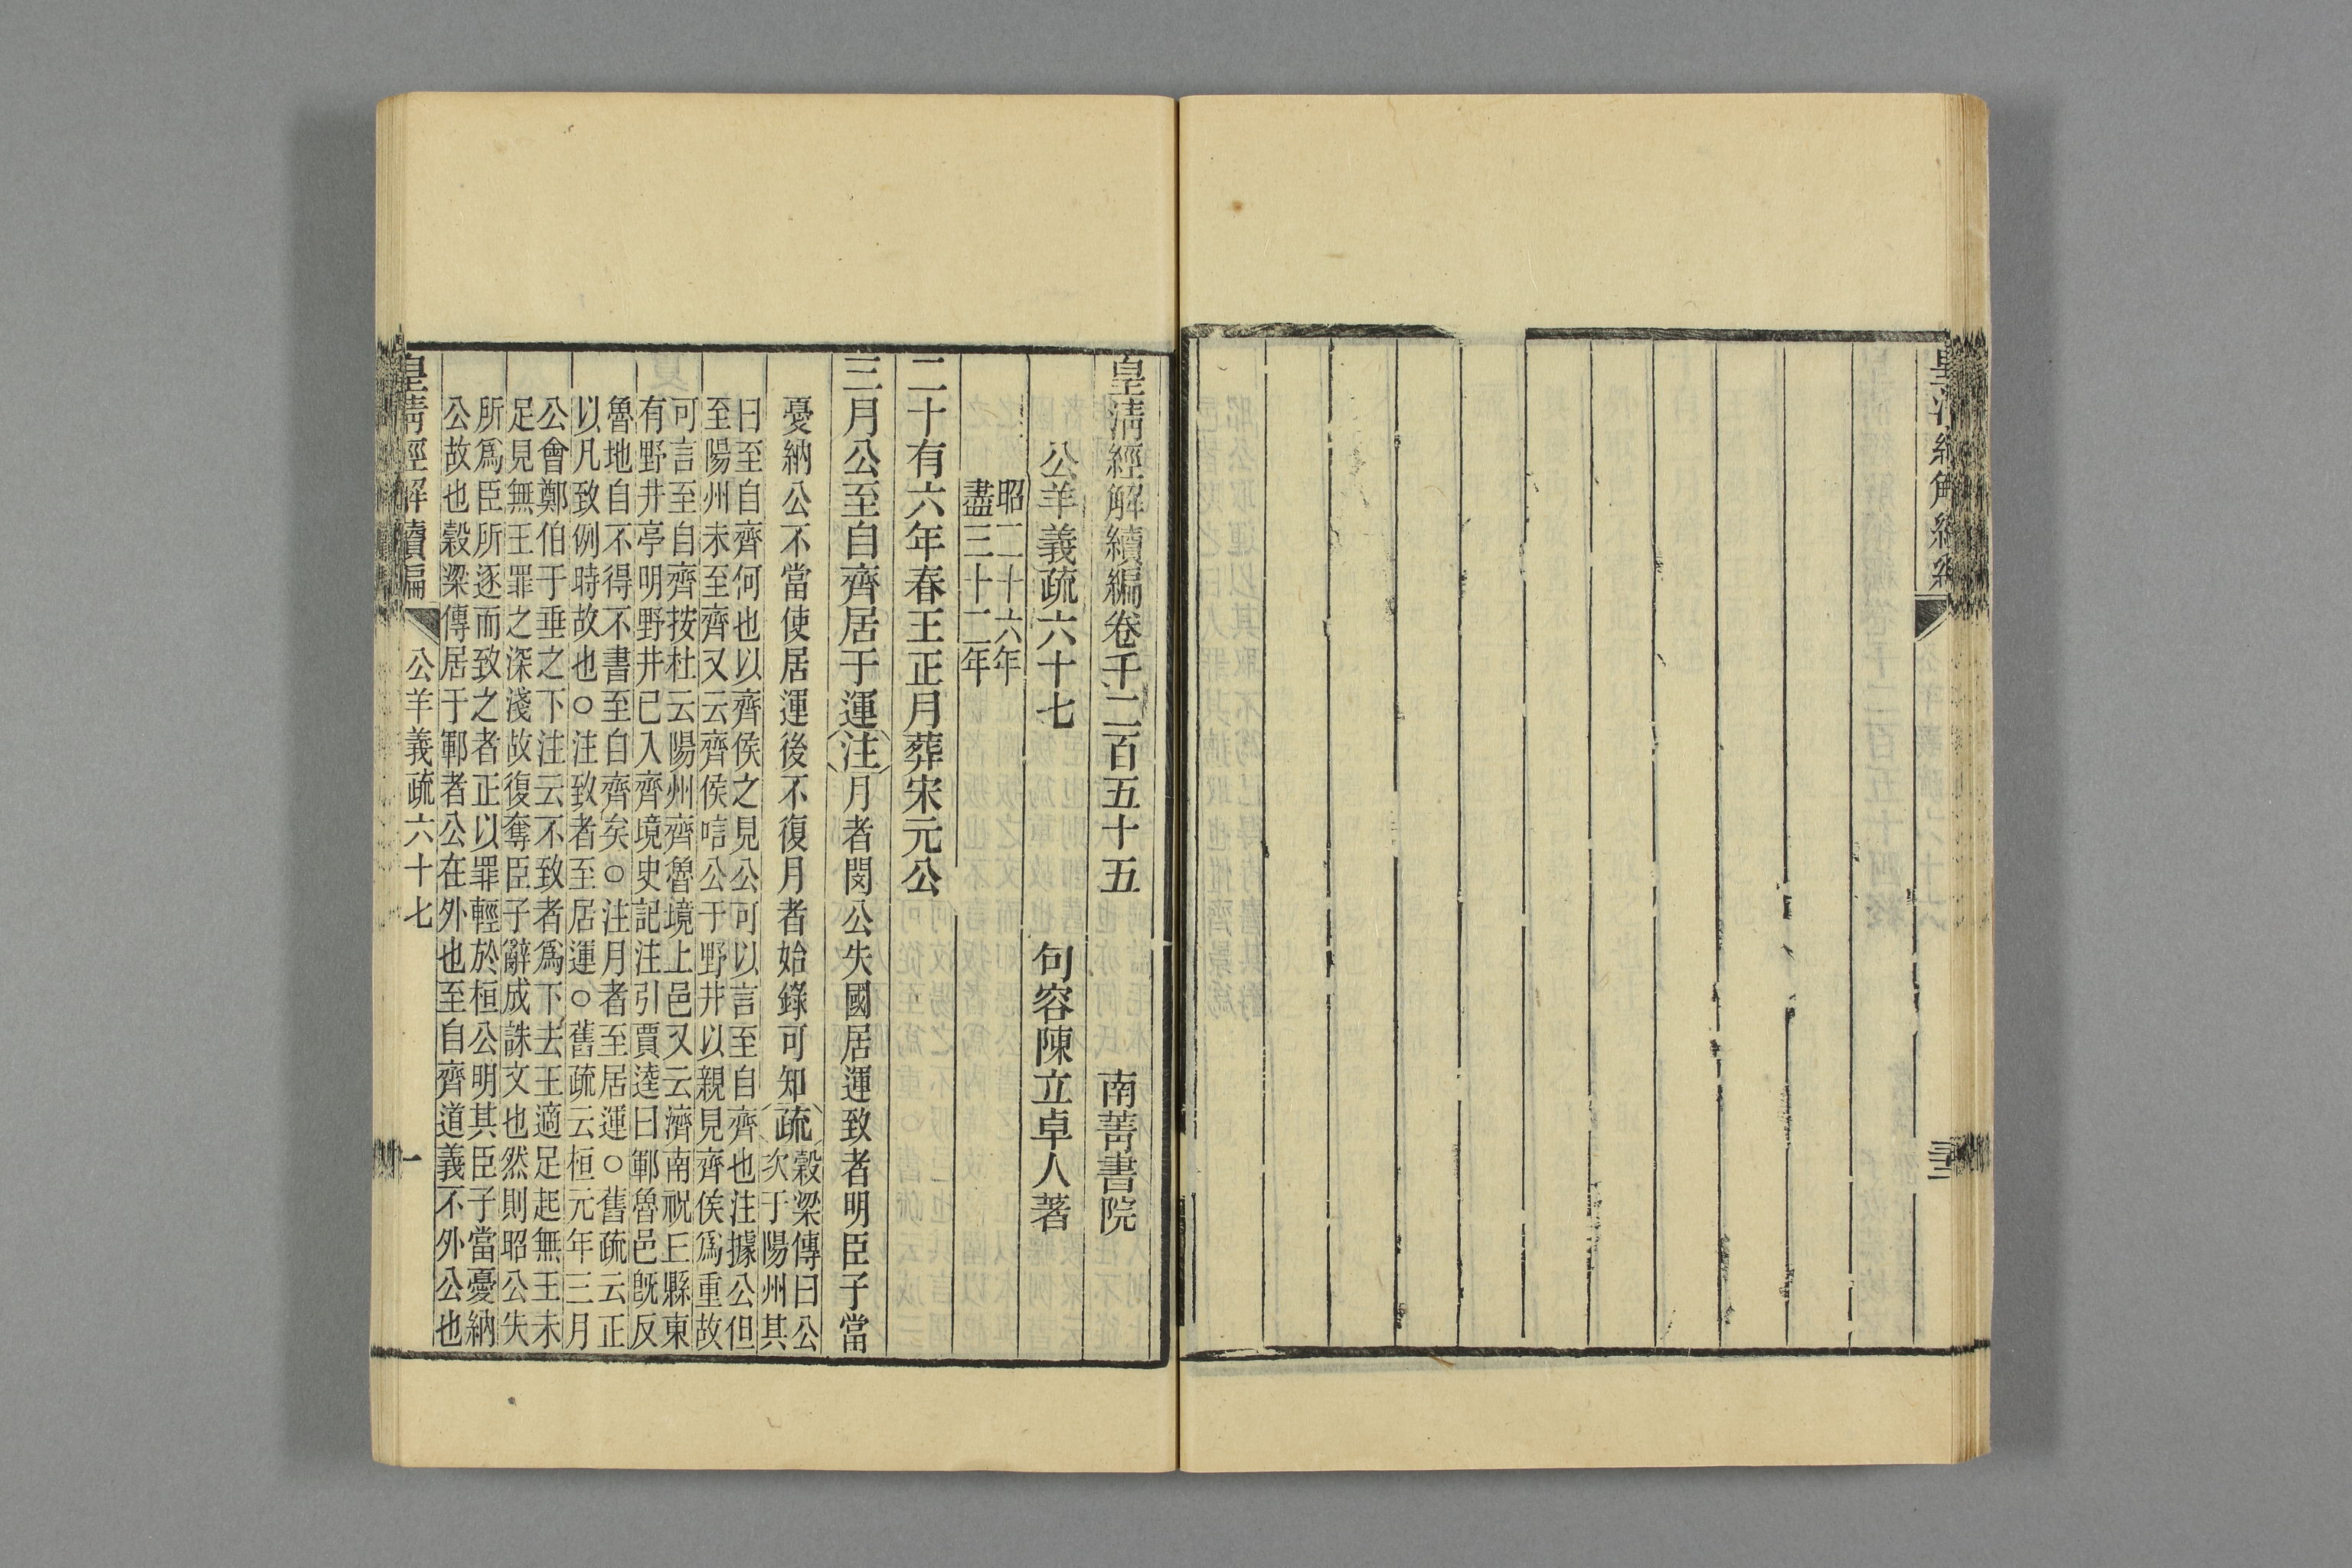 皇清經解續編
三
皇清經解續編卷千二百五十五　南菁書院
公羊義疏六十七　句容陳立卓人著
昭二十六年
盡三十二年
二十有六年春王正月葬宋元公
三月公至自齊居于運注月者閔公失國居運致者明臣子當
憂納公不當使居運後不復月者始錄可知疏
穀梁傳曰公
次于陽州其
曰至自齊何也以齊侯之見公可以言至自齊也注據公但
至陽州未至齊又云齊侯唁公于野井以親見齊侯爲重故
可言至自齊按杜云陽州齊魯境上邑又云濟南祝王縣東
有野井亭明野井已入齊境史記注引賈逵曰鄆魯邑旣反
魯地自不得不書至自齊矣○注月者至居運○舊疏云正
以凡致例時故也○注致者至居運○舊疏云桓元年三月
公會鄭伯于垂之下注云不致者爲下去王適足起無王未
足見無王罪之深淺故復奪臣子辭成誅文也然則昭公失
所爲臣所逐而致之者正以罪輕於桓公明其臣子當憂納
公故也穀梁傳居于鄆者公在外也至自齊道義不外公也
皇清經解續編　公羊義疏六十七　一